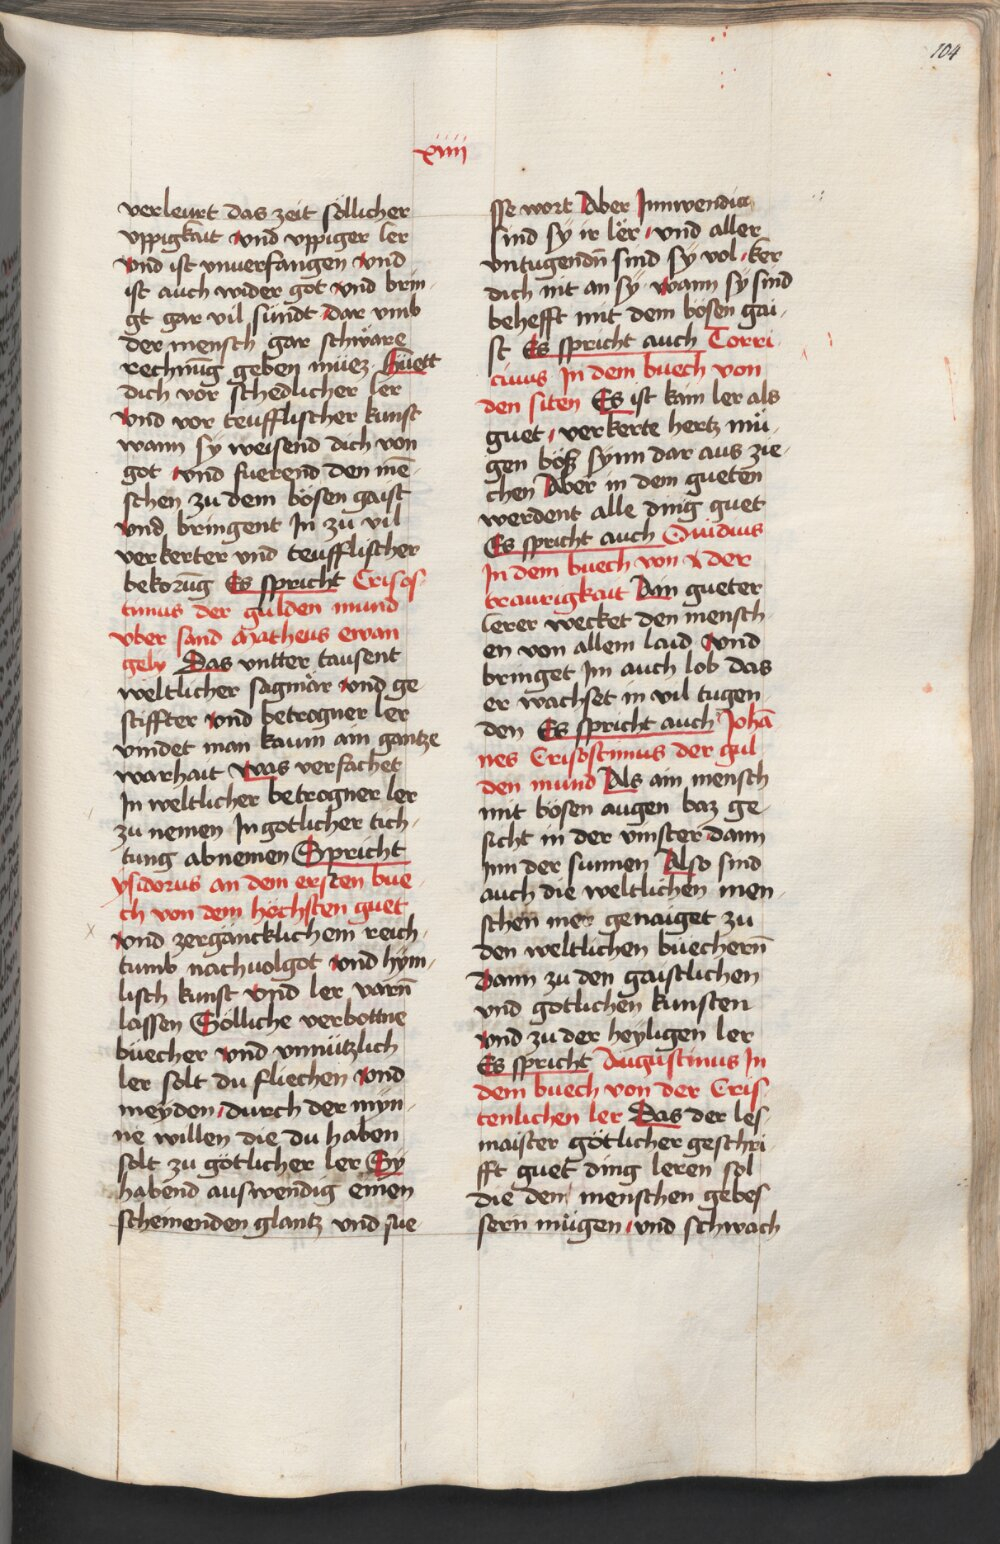 104
xiiij
verleurt das zeit söllicher
vppigkait vnd vppiger ler
vnd ist vnuerfangen vnd
ist auch wider got vnd brin¬
gt gar vil sündt dar vmb
der mensch gar schwäre
rechnu͞g geben müez Hüett
dich vor schedlicher ler
vnd vor teufflischer kunst
wann sy weisend dich von
got vnd fuerend den me͞¬
schen zu dem bösen gaist
vnd bringent In zu vil
verkerter vnd teufflischer
bekoru͞g Es spricht Crisos¬
timus der gulden mund
vber sand Matheus ewan
gely Das vntter tausent
weltlicher sagmär vnd ge
stiffter vnd betrogner ler
vindet man kaum ain gantze
warhait was verfachet
In weltlicher betrogner ler
zu nemen In gotlicher tich¬
tung abnemen Spricht
ysidorus an dem ersten bue¬
ch von dem höchsten guet
vnd zergäncklichem reich¬
tumb nachuolgot vnd hym¬
lisch kunst vnd ler varn̄
lassen Sölliche verbottne
büecher vnd vnnützlich
ler solt du fliechen vnd
meyden durch der myn¬
ne willen die du haben
solt zu götlicher ler Sy
habend auswendig einen
scheinenden glantz vnd sue
sse wort Aber Innwendig
sind sy ir lër vnd aller
vntugendn̄ sind sy vol ker
dich nit an sy wann sy sind
behefft mit dem bösen gai¬
st Es spricht auch Torri
cius In dem buech von
den siten Es ist kain ler als
guet verkerte hertz mü¬
gen böß synn dar aus zie¬
chen Aber in dem gueten
werdent alle ding guet
Es spricht auch Ouidius
In dem buech von der
traurigkait Ain gueter
lerer wecket den mensch¬
en von allem laid vnd
bringet Im auch lob das
er wachset in vil tugen
den Es spricht auch Joha͞
nes Crisostimus der gul
den mund Als ain mensch
mit bösen augen baz ge¬
sicht in der vinster dann
Inn der sunnen Also sind
auch die weltlichen men¬
schen mer genaiget zu
den weltlichen büechern̄
Dann zu den gaistlichen
vnd gotlichen kunsten
vnd zu der heyligen ler
Es spricht Augustinus In
dem buech von der Cris¬
tenlichen ler Das der les¬
maister götlicher geschri¬
fft guet ding leren sol
die dem menschen gebes¬
sern mügen vnd schwach